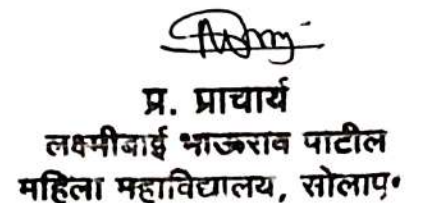 प्र. प्राचार्य
लक्ष्मीबाई भाऊराव पाटील
महिला महाविद्यालय, सोलापू.